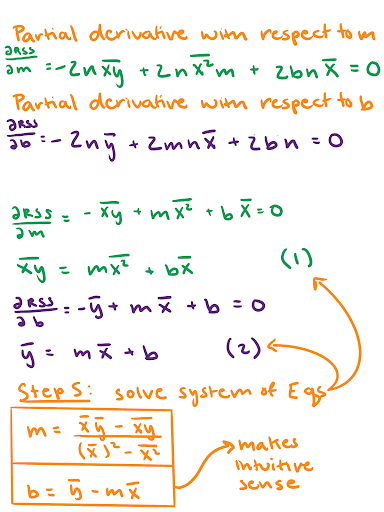 Partial derivative with respect to m
∂RSS/∂m = -2n x̅y̅ + 2n x̅²̅ m + 2bn x̅ = 0
Partial derivative with respect to b
∂RSS/∂b = -2n y̅ + 2mn x̅ + 2bn = 0
∂RSS/∂m = -x̅y̅ + m x̅²̅ + b x̅ = 0
x̅y̅ = m x̅²̅ + b x̅ (1)
∂RSS/∂b = -y̅ + m x̅ + b = 0
y̅ = m x̅ + b (2)
Step 5: solve system of Eqs
m = (x̅ y̅ - x̅y̅)/((x̅)² - x̅²̅)
makes
intuitive
sense
b = y̅ - m x̅